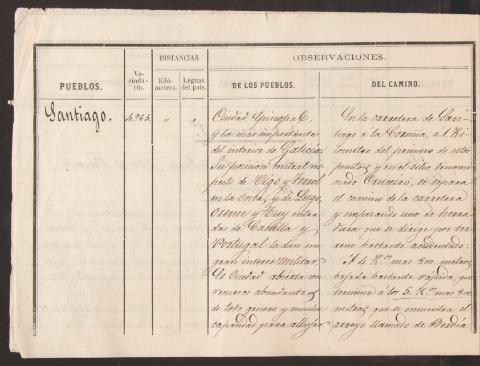 PUEBLOS.
Vecindario.
DISTANCIAS.
Kilómetros.
Leguas del país.
OBSERVACIONES.
DE LOS PUEBLOS.
DEL CAMINO.
Santiago.
4.965
"
"
Ciudad Episcopal,
y la mas importante
del interior de Galicia.
Su posicion central res
pecto de Vigo y Ferrol
en la Costa, y de Lugo,
Orense y Tuy entra
das de Castilla y
Portugal la dan un
gran interes militar.
Es Ciudad abierta con
recursos abundantes
de todo genero y mucha
capacidad para
En la carretera de San
tiago a la Coruña, a 1 Ki
lometro del primero de estos
puntos, y en el sitio denomi
nado Crucero, se separa
el camino de la carretera
y empezando uno de herra
dura que se dirige por ter
reno bastante accidentado.
A 4 K.os mas 800 metros,
bajada bastante rapida, que
termina á los 5. K.os mas 800
metros, que se encuentra el
arroyo llamado de Berdía